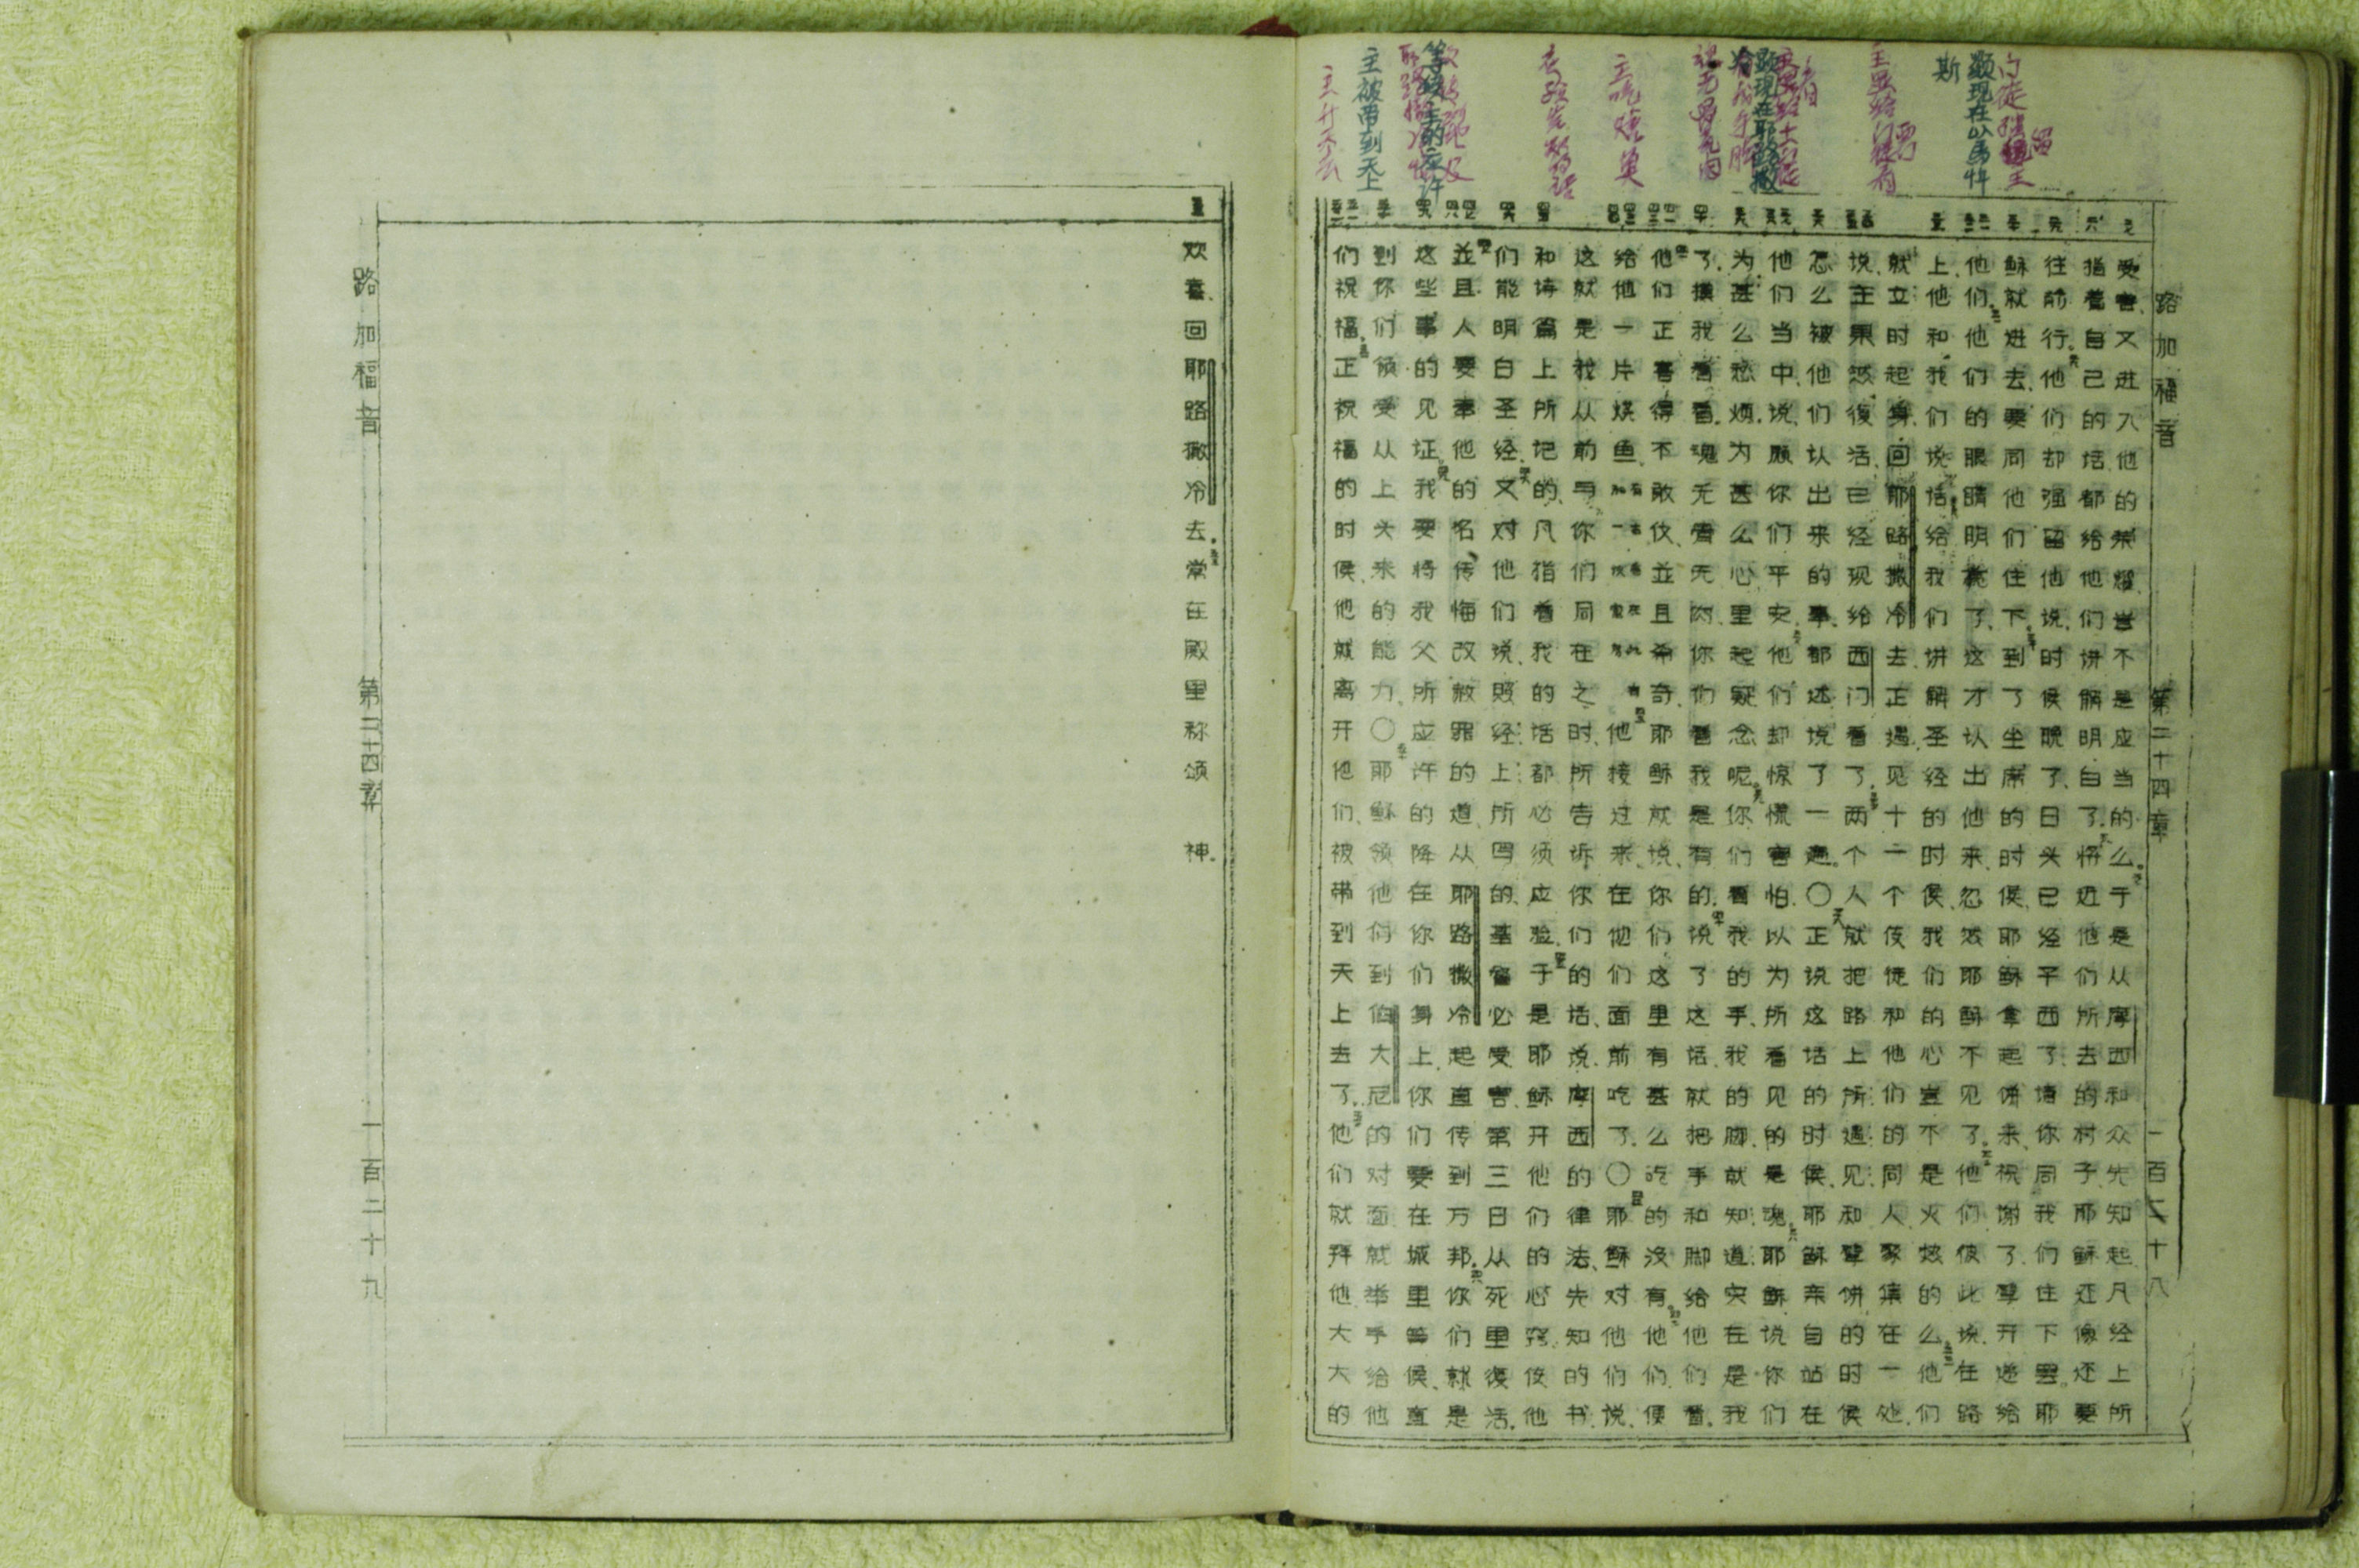 路加福音 第二十四章 一百二十八
显现在以馬忤斯
显现在耶路撒冷
等候主的应许
主被带到天上
受害、又进入他的荣耀、岂不是应当的么于是从摩西和众先知起凡经上所
指着自己的话都给他们讲解明白了、将近他们所去的村子、耶稣还像还要
往前行、他们却强留他说、时候晚了、日头已经平西了、请你同我们住下罢。耶
稣就进去、要同他们住下、到了坐席的时候、耶稣拿起饼来、祝谢了、擘开递给
他们、他们的眼睛明亮了、这才认出他来、忽然耶稣不见了、他们彼此说、在路
上、他和我们说话、给我们讲解圣经的时候、我们的心岂不是火热的么他们
就立时起身、回耶路撒冷去、正遇见十一个使徒和他们的同人聚集在一处、
说、主果然復活、已经现给西门看了、两个人就把路上所遇见、和擘饼的时候
怎么被他们认出来的事、都述说了一遍。〇正说这话的时候、耶稣亲自站在
他们当中、说、愿你们平安、他们却惊慌害怕、以为所看见的是魂、耶稣说你们
为甚么愁烦、为甚么心里起疑念呢、你们看我的手、我的脚、就知道实在是我
了、摸我看看、魂无骨无肉、你们看我是有的、说了这话、就把手和脚给他们看。
他们正喜得不敢信、並且希奇、耶稣就说、你们这里有甚么吃的没有他们便
给他一片烧鱼他接过来、在他们面前吃了、〇耶稣对他们说、
这就是我从前与你们同在之时、所告诉你们的话、说、摩西的律法、先知的书、
和诗篇上所记的、凡指着我的话都必须应验、于是耶稣开他们的心窍、使他
们能明白圣经、又对他们说、照经上所写的、基督必受害、第三日从死里復活。
並且人要奉他的名、传悔改赦罪的道、从耶路撒冷起直传到万邦、你们就是
这些事的见证、我要将我父所应许的降在你们身上、你们要在城里等候、直
到你们领受从上头来的能力、〇耶稣领他们到伯大尼的对面、就举手给他
们祝福、正祝福的时候、他就离开他们、被带到天上去了、他们就拜他大大的
欢喜、回耶路撒冷去、常在殿里称颂 神。
路加福音 第二十四章 一百二十九